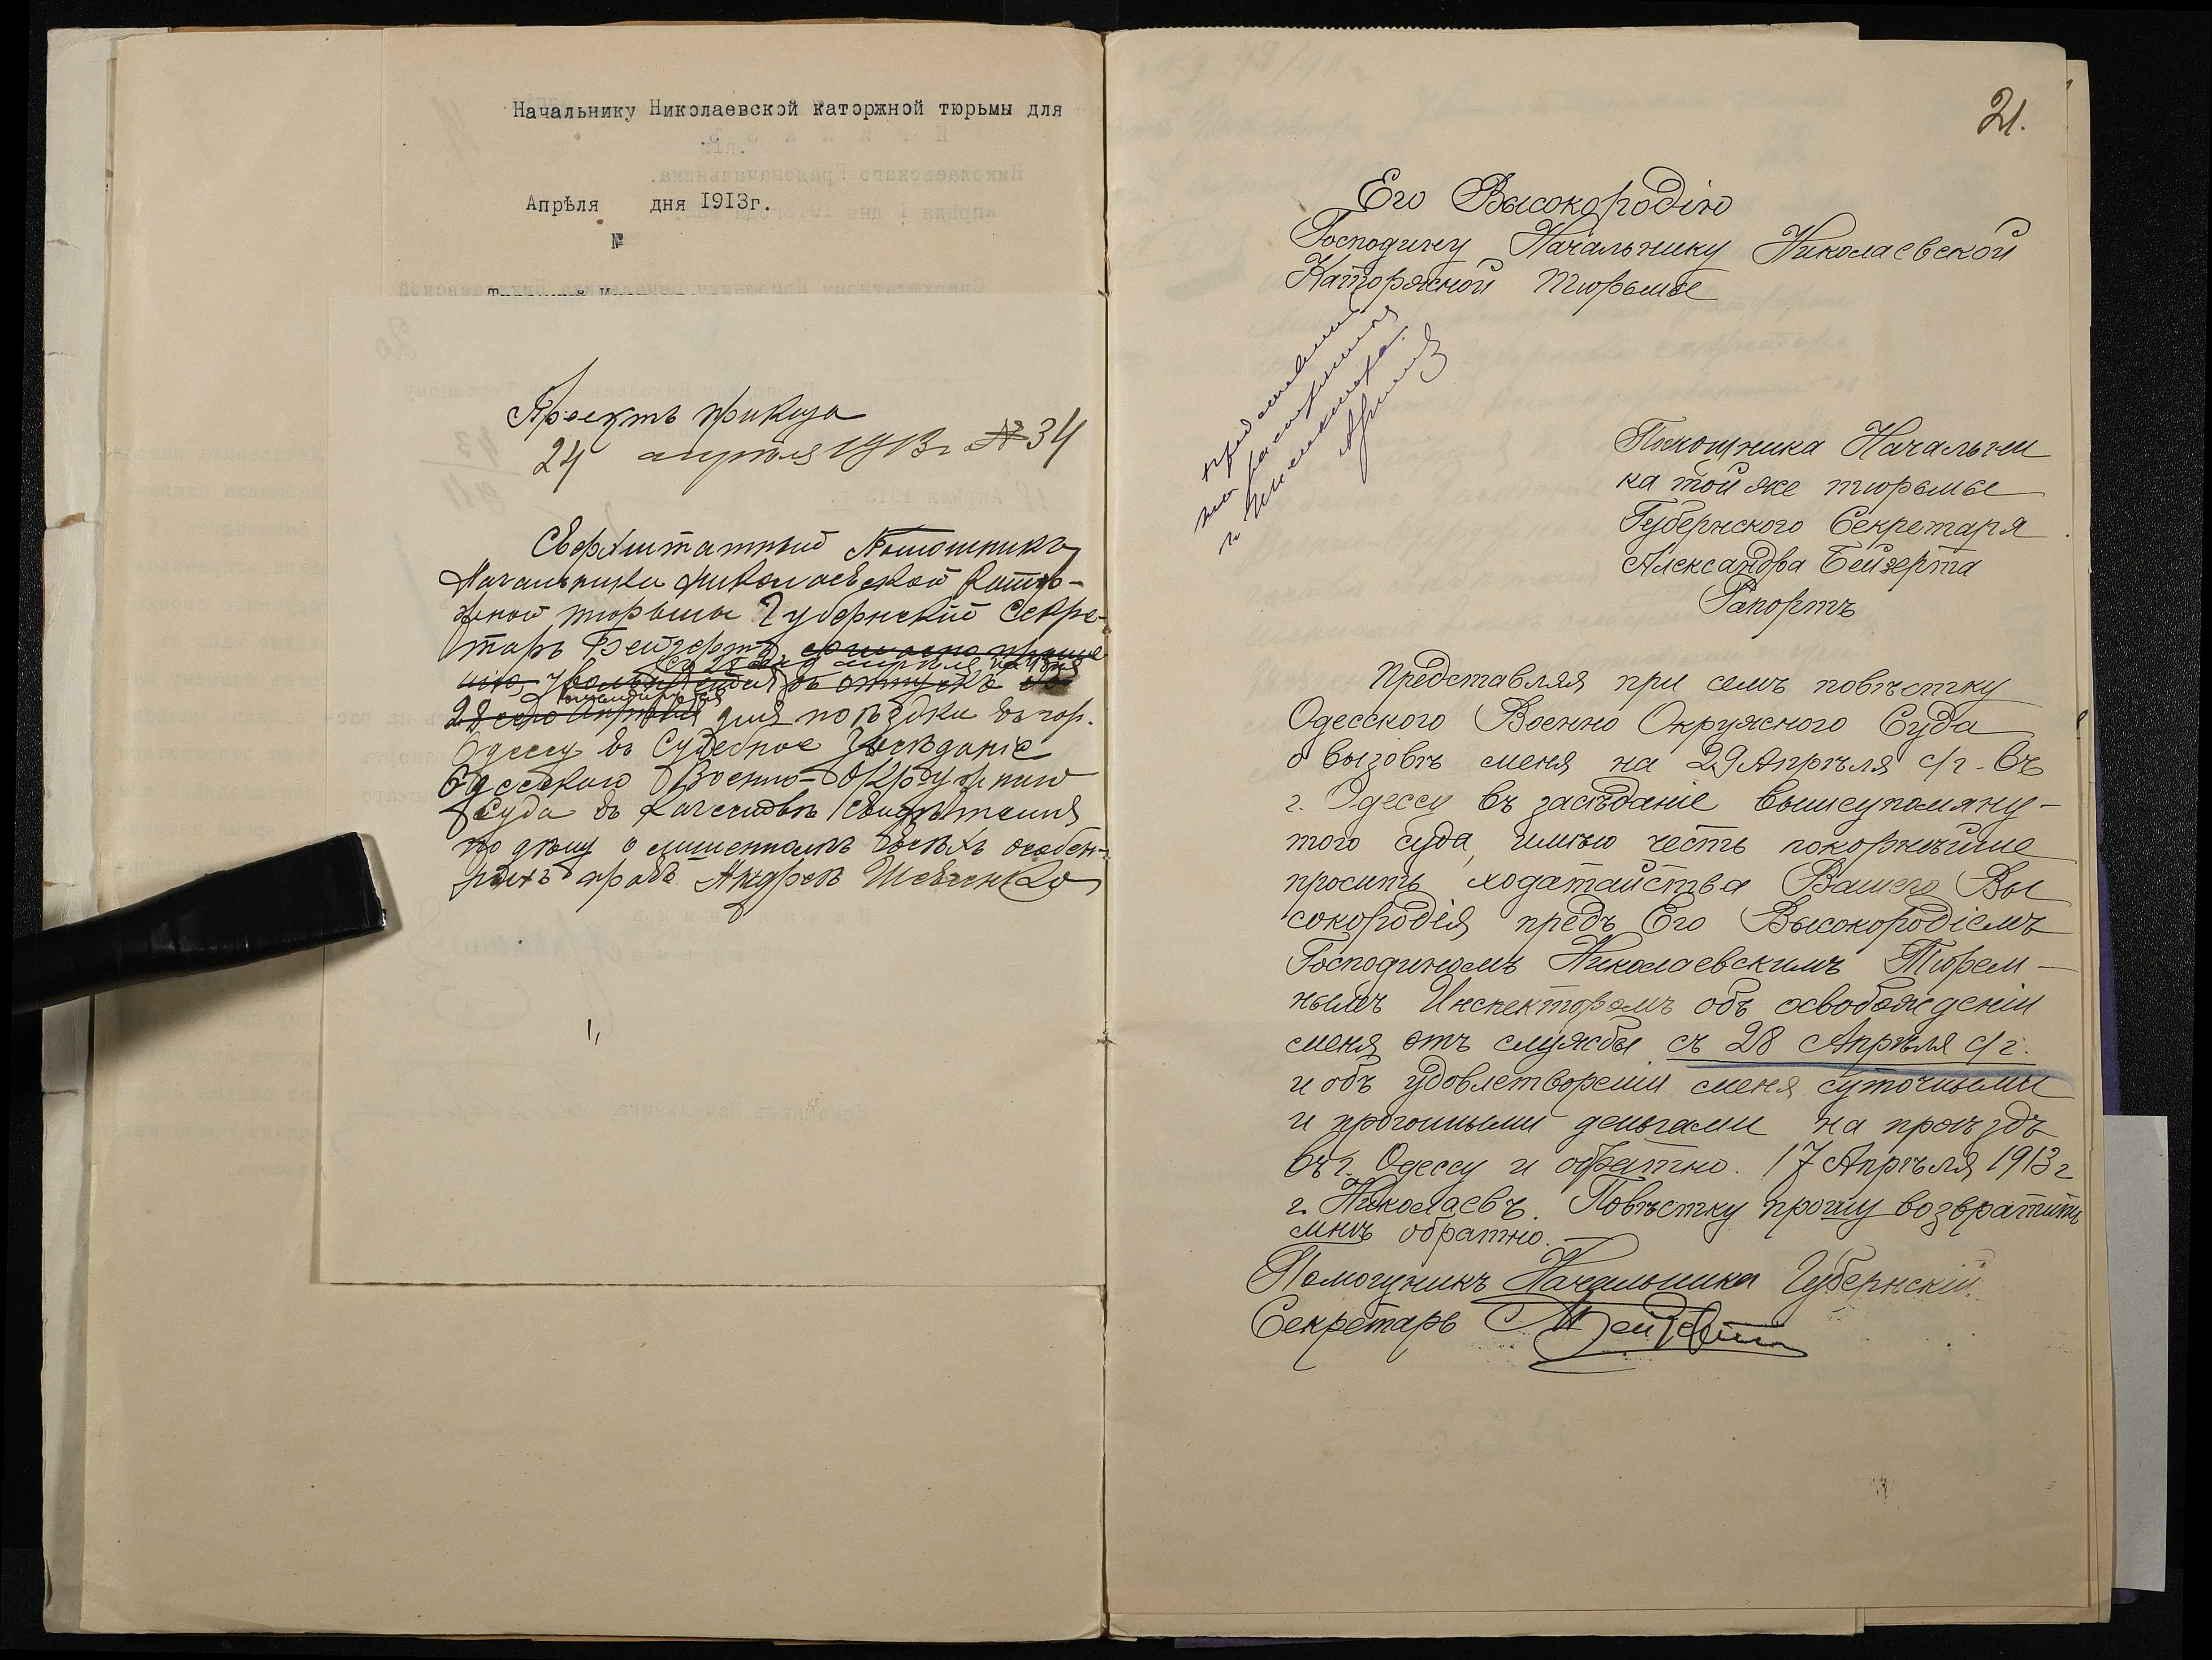 Начальнику Николаевской каторжной тюрьмы для
Апрѣля дня 1913г.
№
Проектъ приказа
24 апрѣля 1913г №34
Сверхштатный Помошникъ
Начальника Николаевской Катор-
жной тюрьмы Губернский Секре-
тарь Бейзертъ, согласно проше
нію, увольняется въ отпускъ съ
28 сего Апрѣля для поѣздки въ гор.
Одессу въ Судебное Засѣданіе
Одесскаго Военно-Окружнаго
Суда въ качествѣ свидѣтеля
по дѣлу о лишенномъ всѣхъ особен-
ныхъ правъ Андреѣ Шевченко
21.
Его Высокородію
Господину Начальнику Николаевской
Каторжной Тюрьмѣ
Помощника Начальни
ка той же тюрьмы
Губернского Секретаря
Александра Бейзерта
Рапортъ
Представляя при семъ повѣстку
Одесского Военно Окружного Суда
о вызовѣ меня на 29 Апрѣля с/г. въ
г. Одессу въ засѣданіе вышеупомяну-
того суда, имѣю честь покорнѣйше
просить ходатайства Вашего Вы
сокородія предъ Его Высокородіемъ
Господиномъ Николаевскимъ Тюрем-
нымъ Инспекторомъ объ освобожденіи
меня отъ службы съ 28 Апрѣля с/г.
и объ удовлетвореніи меня суточными
и прогонными деньгами на проѣздъ
въ г. Одессу и обратно. 17 Апрѣля 1913 г
г. Николаевъ. Повѣстку прошу возвратить
мнѣ обратно.
Помощникъ Начальника Губернскій
Секретарь А Бейзертъ